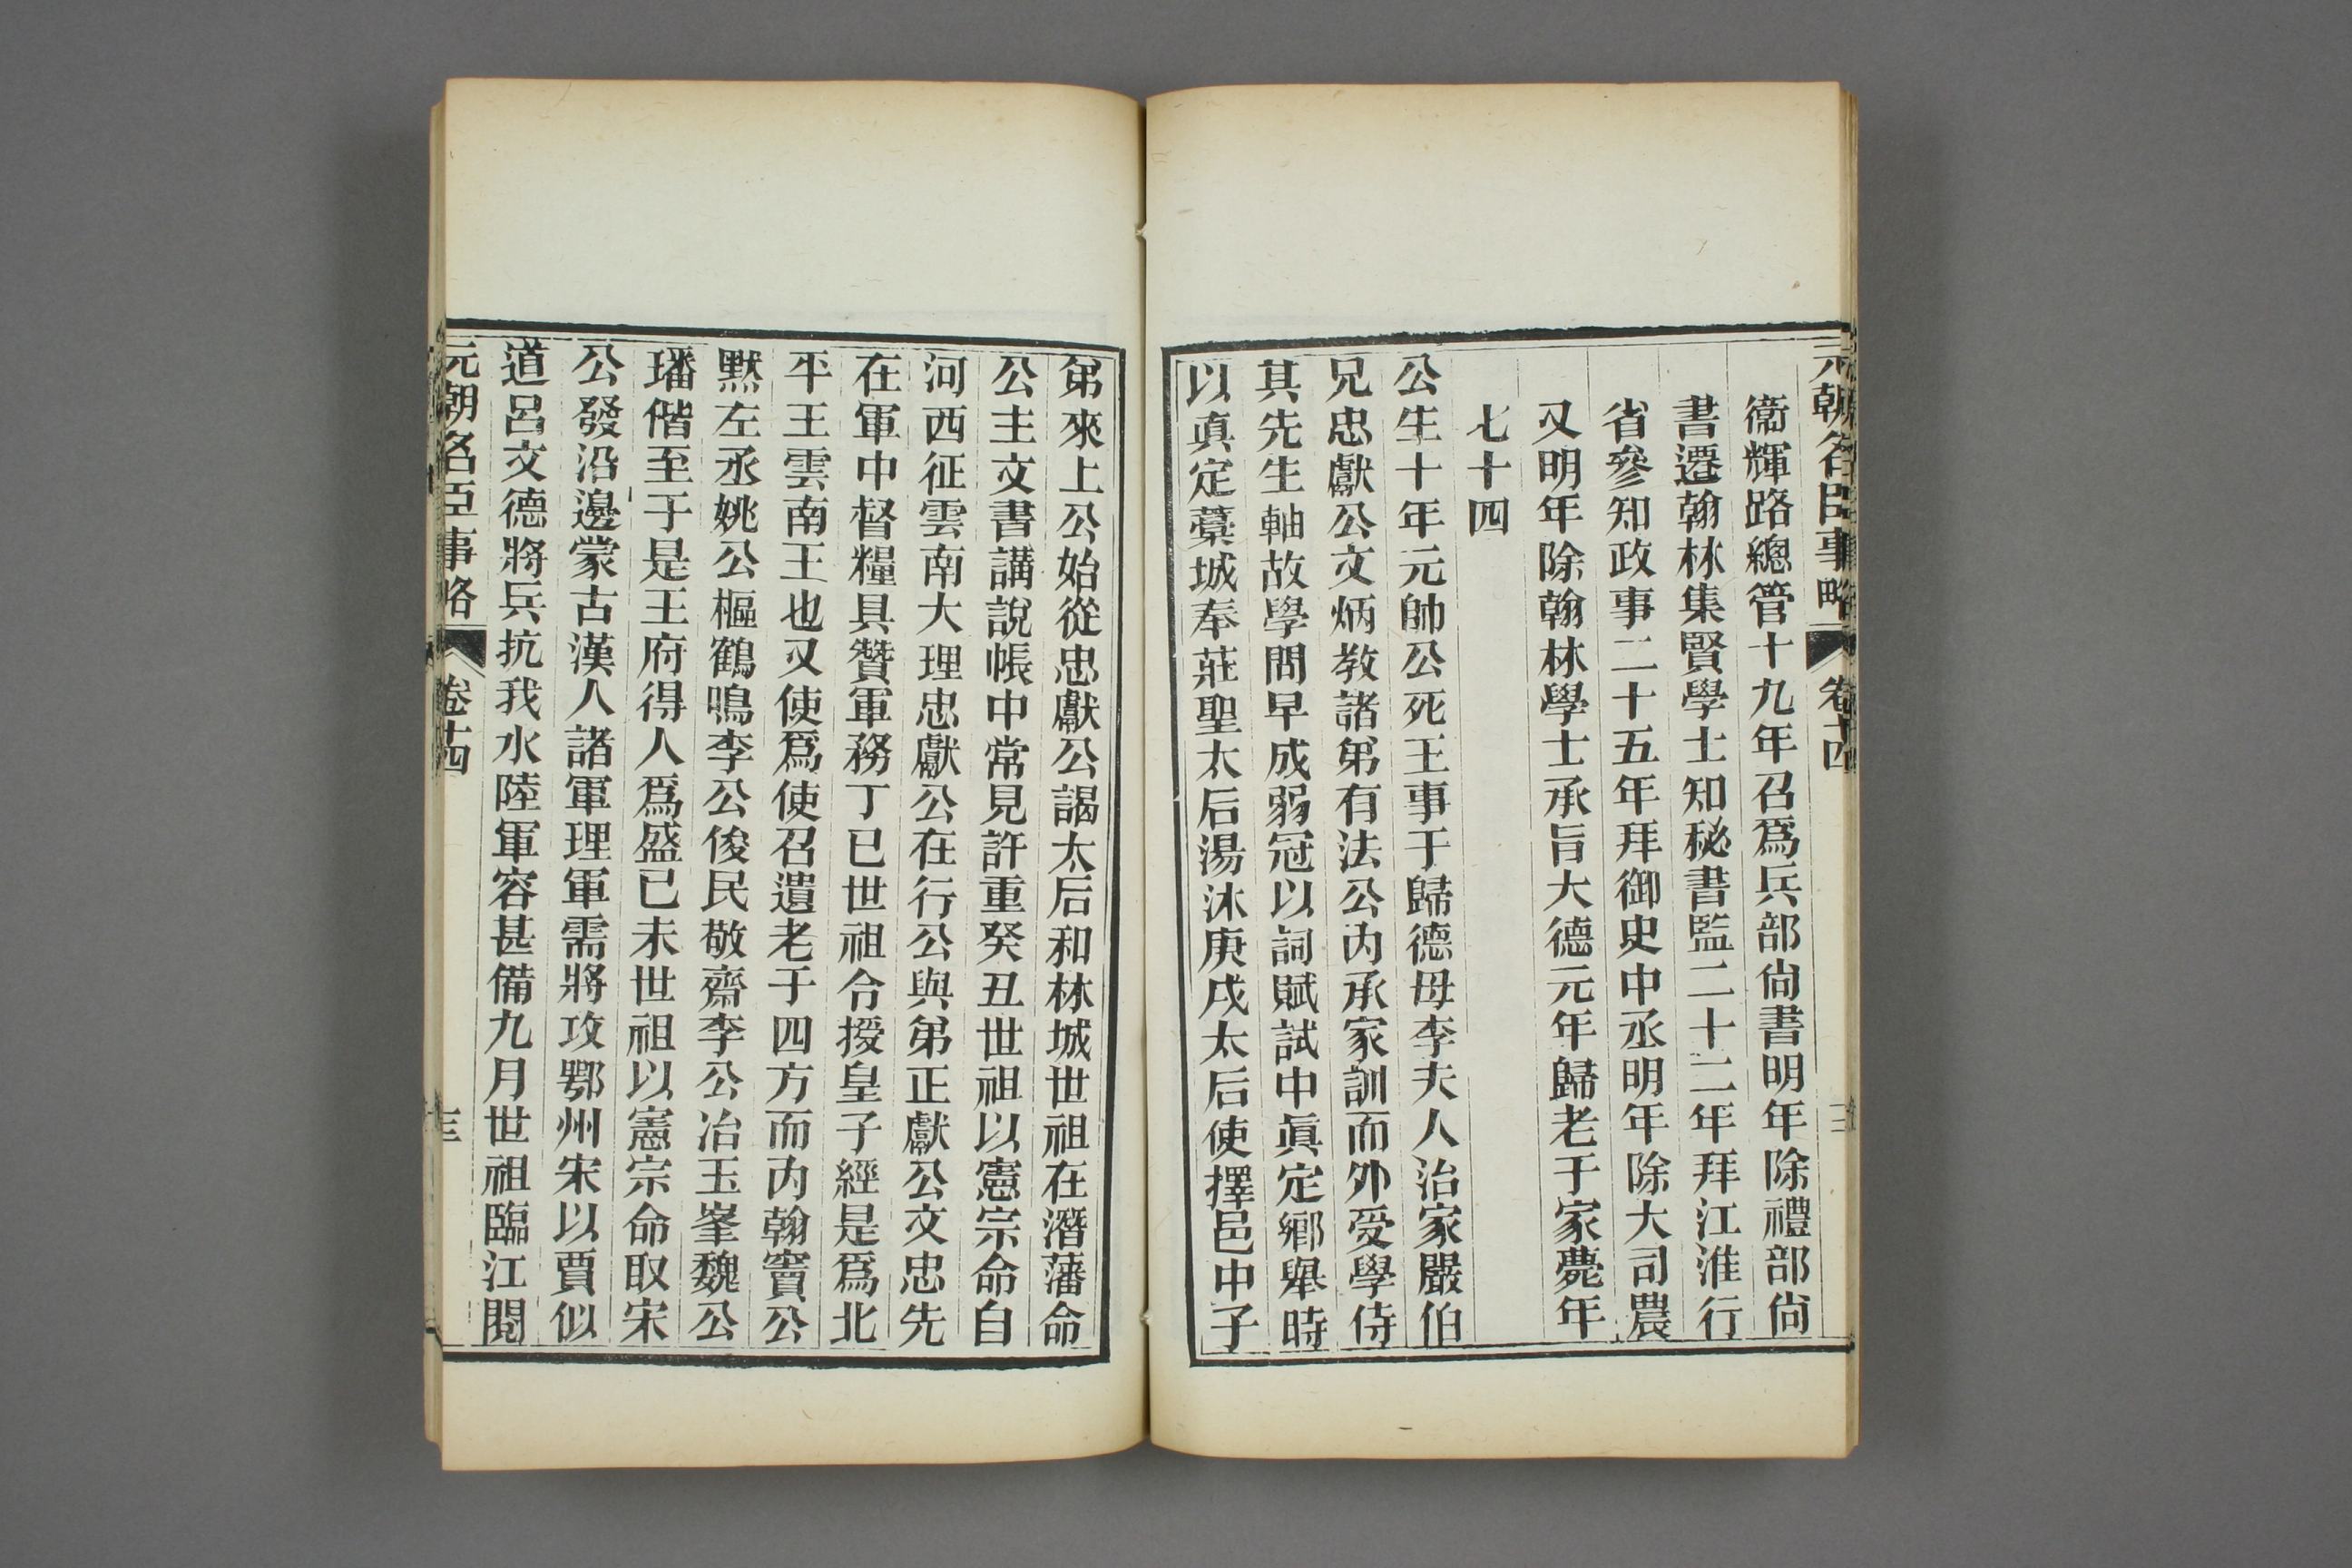 元朝名臣事略 卷十四
衞輝路總管十九年召爲兵部尙書明年除禮部尙
書遷翰林集賢學士知秘書監二十二年拜江淮行
省參知政事二十五年拜御史中丞明年除大司農
又明年除翰林學士承旨大德元年歸老于家薨年
七十四
公生十年元帥公死王事于歸德母李夫人治家嚴伯
兄忠獻公文炳教諸弟有法公內承家訓而外受學侍
其先生軸故學問早成弱冠以詞賦試中眞定鄉舉時
以眞定藁城奉莊聖太后湯沐庚戌太后使擇邑中子
弟來上公始從忠獻公謁太后和林城世祖在潛藩命
公主文書講說帳中常見許重癸丑世祖以憲宗命自
河西征雲南大理忠獻公在行公與弟正獻公文忠先
在軍中督糧具贊軍務丁巳世祖令授皇子經是爲北
平王雲南王也又使爲使召遺老于四方而內翰竇公
黙左丞姚公樞鶴鳴李公俊民敬齋李公冶玉峯魏公
璠偕至于是王府得人爲盛己未世祖以憲宗命取宋
公發沿邊蒙古漢人諸軍理軍需將攻鄂州宋以賈似
道呂文德將兵抗我水陸軍容甚備九月世祖臨江閱
元朝名臣事略 卷十四